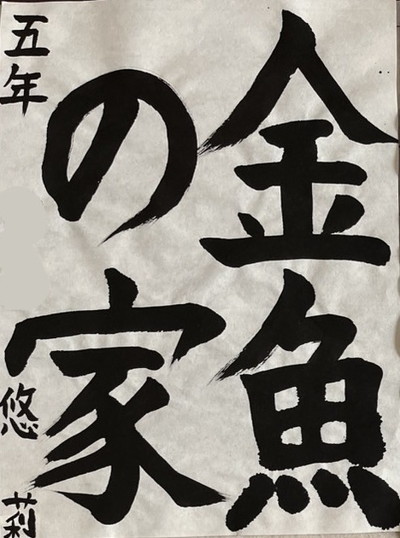 金魚
の家
五年
悠莉